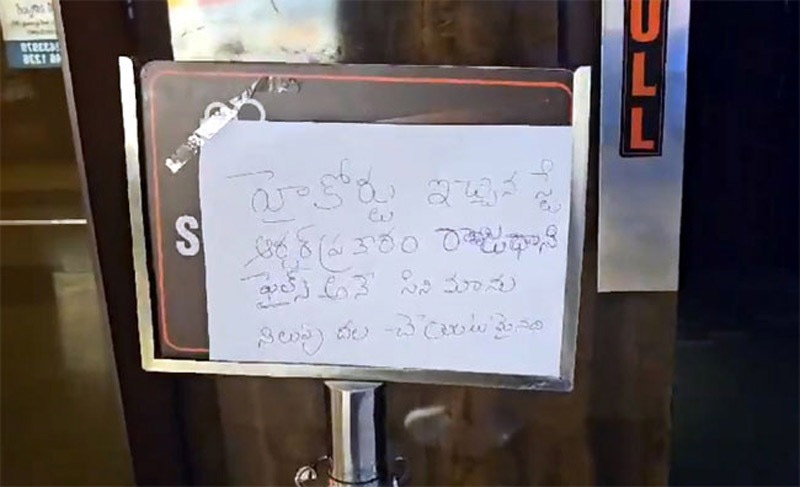 హైకోర్టు ఇచ్చిన స్టే
ఆర్డర్ ప్రకారం రాజధాని
ఫైల్స్ అనే సినిమాను
నిలుపుదల చేయటమైనది
S
ULL